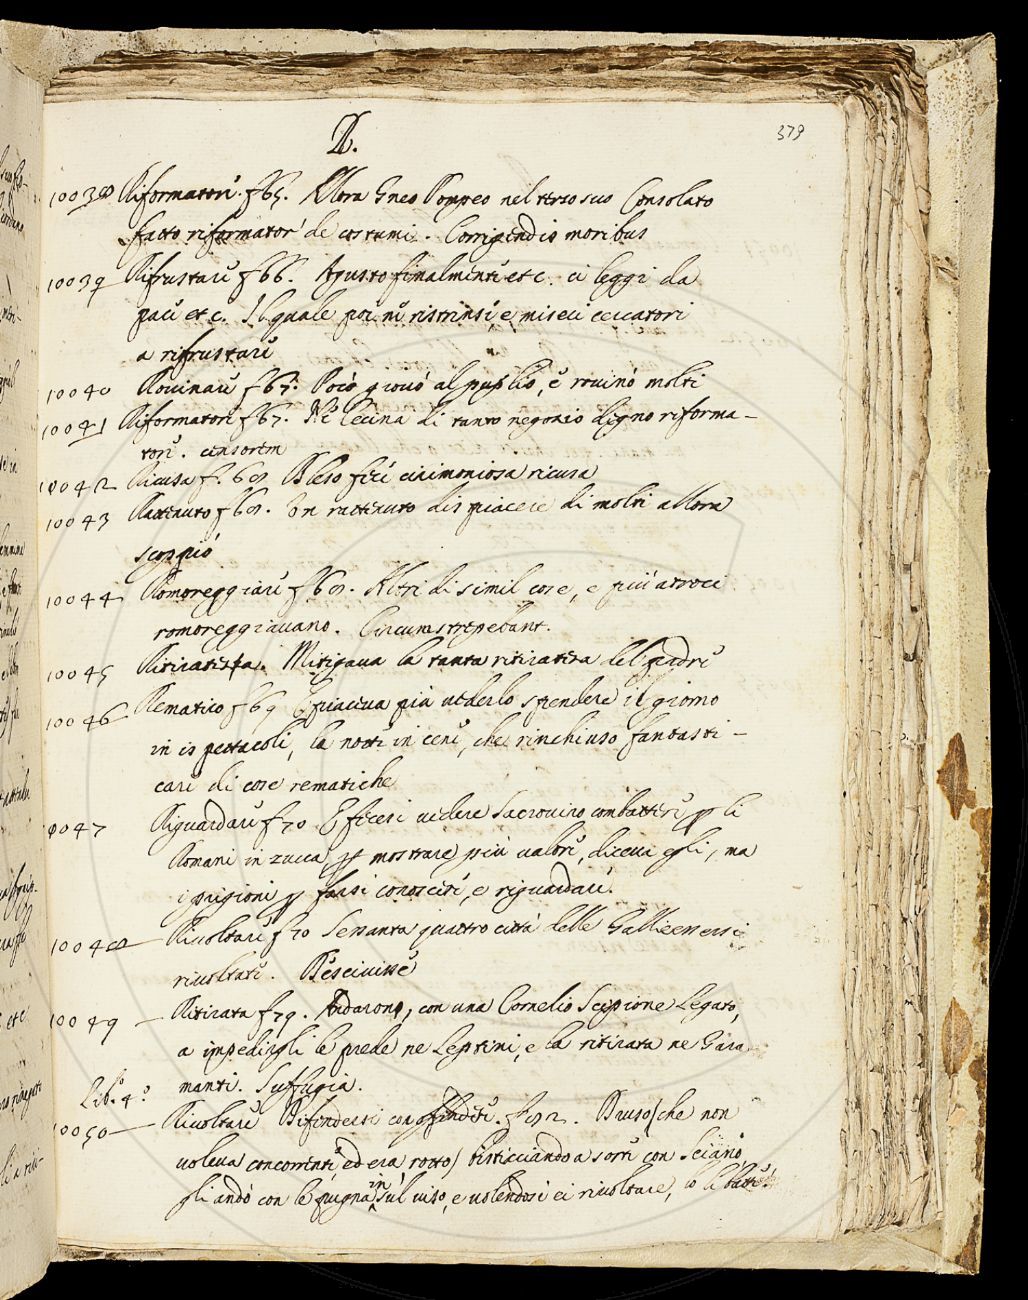 379
R.
10038 Riformatore. f 65. Allora Gneo Pompeo nel terzo suo Consolato
fatto riformator de costumi. Corrigendis moribus
10039 Rifrustare f 66. Agusto finalmente etc. ci leggi da
pace etc. Il quale poi ne ristrinse, e mise ci ceccatori
a rifrustare
10040 Rouinare f 67. Poco giouò al publio, e rouinò molti
10041 Riformatore f 67. Nè Cecina di tanto negozio degno riforma-
tore. censorem
10042 Ricusa f. 68 Bleso fece cirimoniosa ricusa
10043 Rattenuto f 68. Un rattenuto dispiacere di molti allora
scoppiò
10044 Romoreggiare f 68. Altri di simil cose, e più atroci
romoreggiauano. Circumstrepebant.
10045 Ritiratezza. Mitigaua la tanta ritiratezza del padre
10046 Rematico f 69 E piaceua più uederlo spendere il giorno
in ispettacoli, la notte in cene, che rinchiuso fantasti-
care di cose rematiche
10047 Riguardare f 70 E fecesi uedere Sacrouiro combattere p li
Romani in zucca, p mostrare più ualore, diceua egli, ma
i prigioni p farsi conoscere, e riguardare.
10048 Riuoltare f 70 Sessanta quattro città delle Gallie essersi
riuoltate. Desciuisse
10049 Ritirata f 79. Andarono, con una Cornelio Scipione Legato,
a impedirgli le prede ne Leptini, e la ritirata ne Gara
manti. Suffugia.
Lib. 4.°
10050 Riuoltare Difendersi con offendere. f 92. Druso / che non
uoleua concorrente ed era rotto / bisticciando a sorte con Seiano,
gli andò con le pugna in sul uiso, e uolendosi ei riuoltare, lo battè.